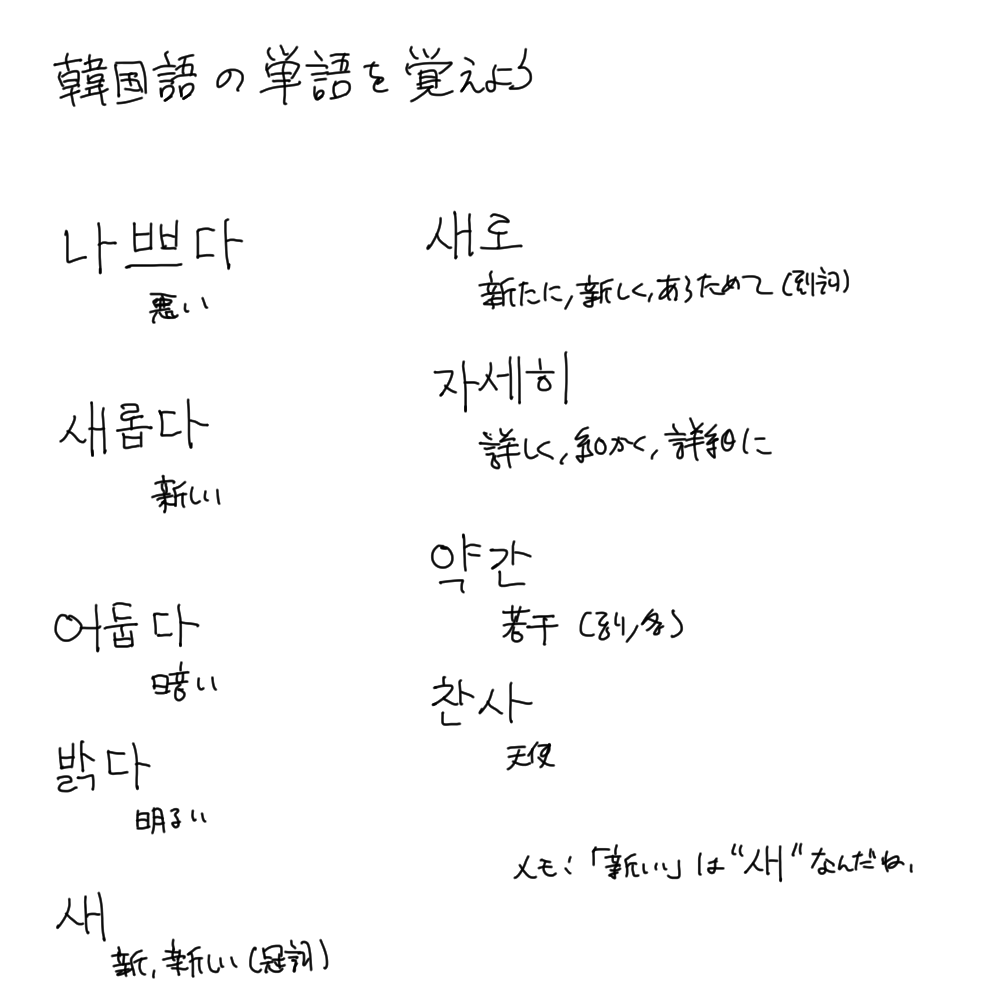 韓国語の単語を覚えよう
나쁘다
悪い
새롭다
新しい
어둡다
暗い
밝다
明るい
새
新, 新しい (冠詞)
새로
新たに, 新しく, あらためて (副詞)
자세히
詳しく, 細かく, 詳細に
약간
若干 (副/名)
찬사
天使
メモ:「新しい」は"새"なんだね.